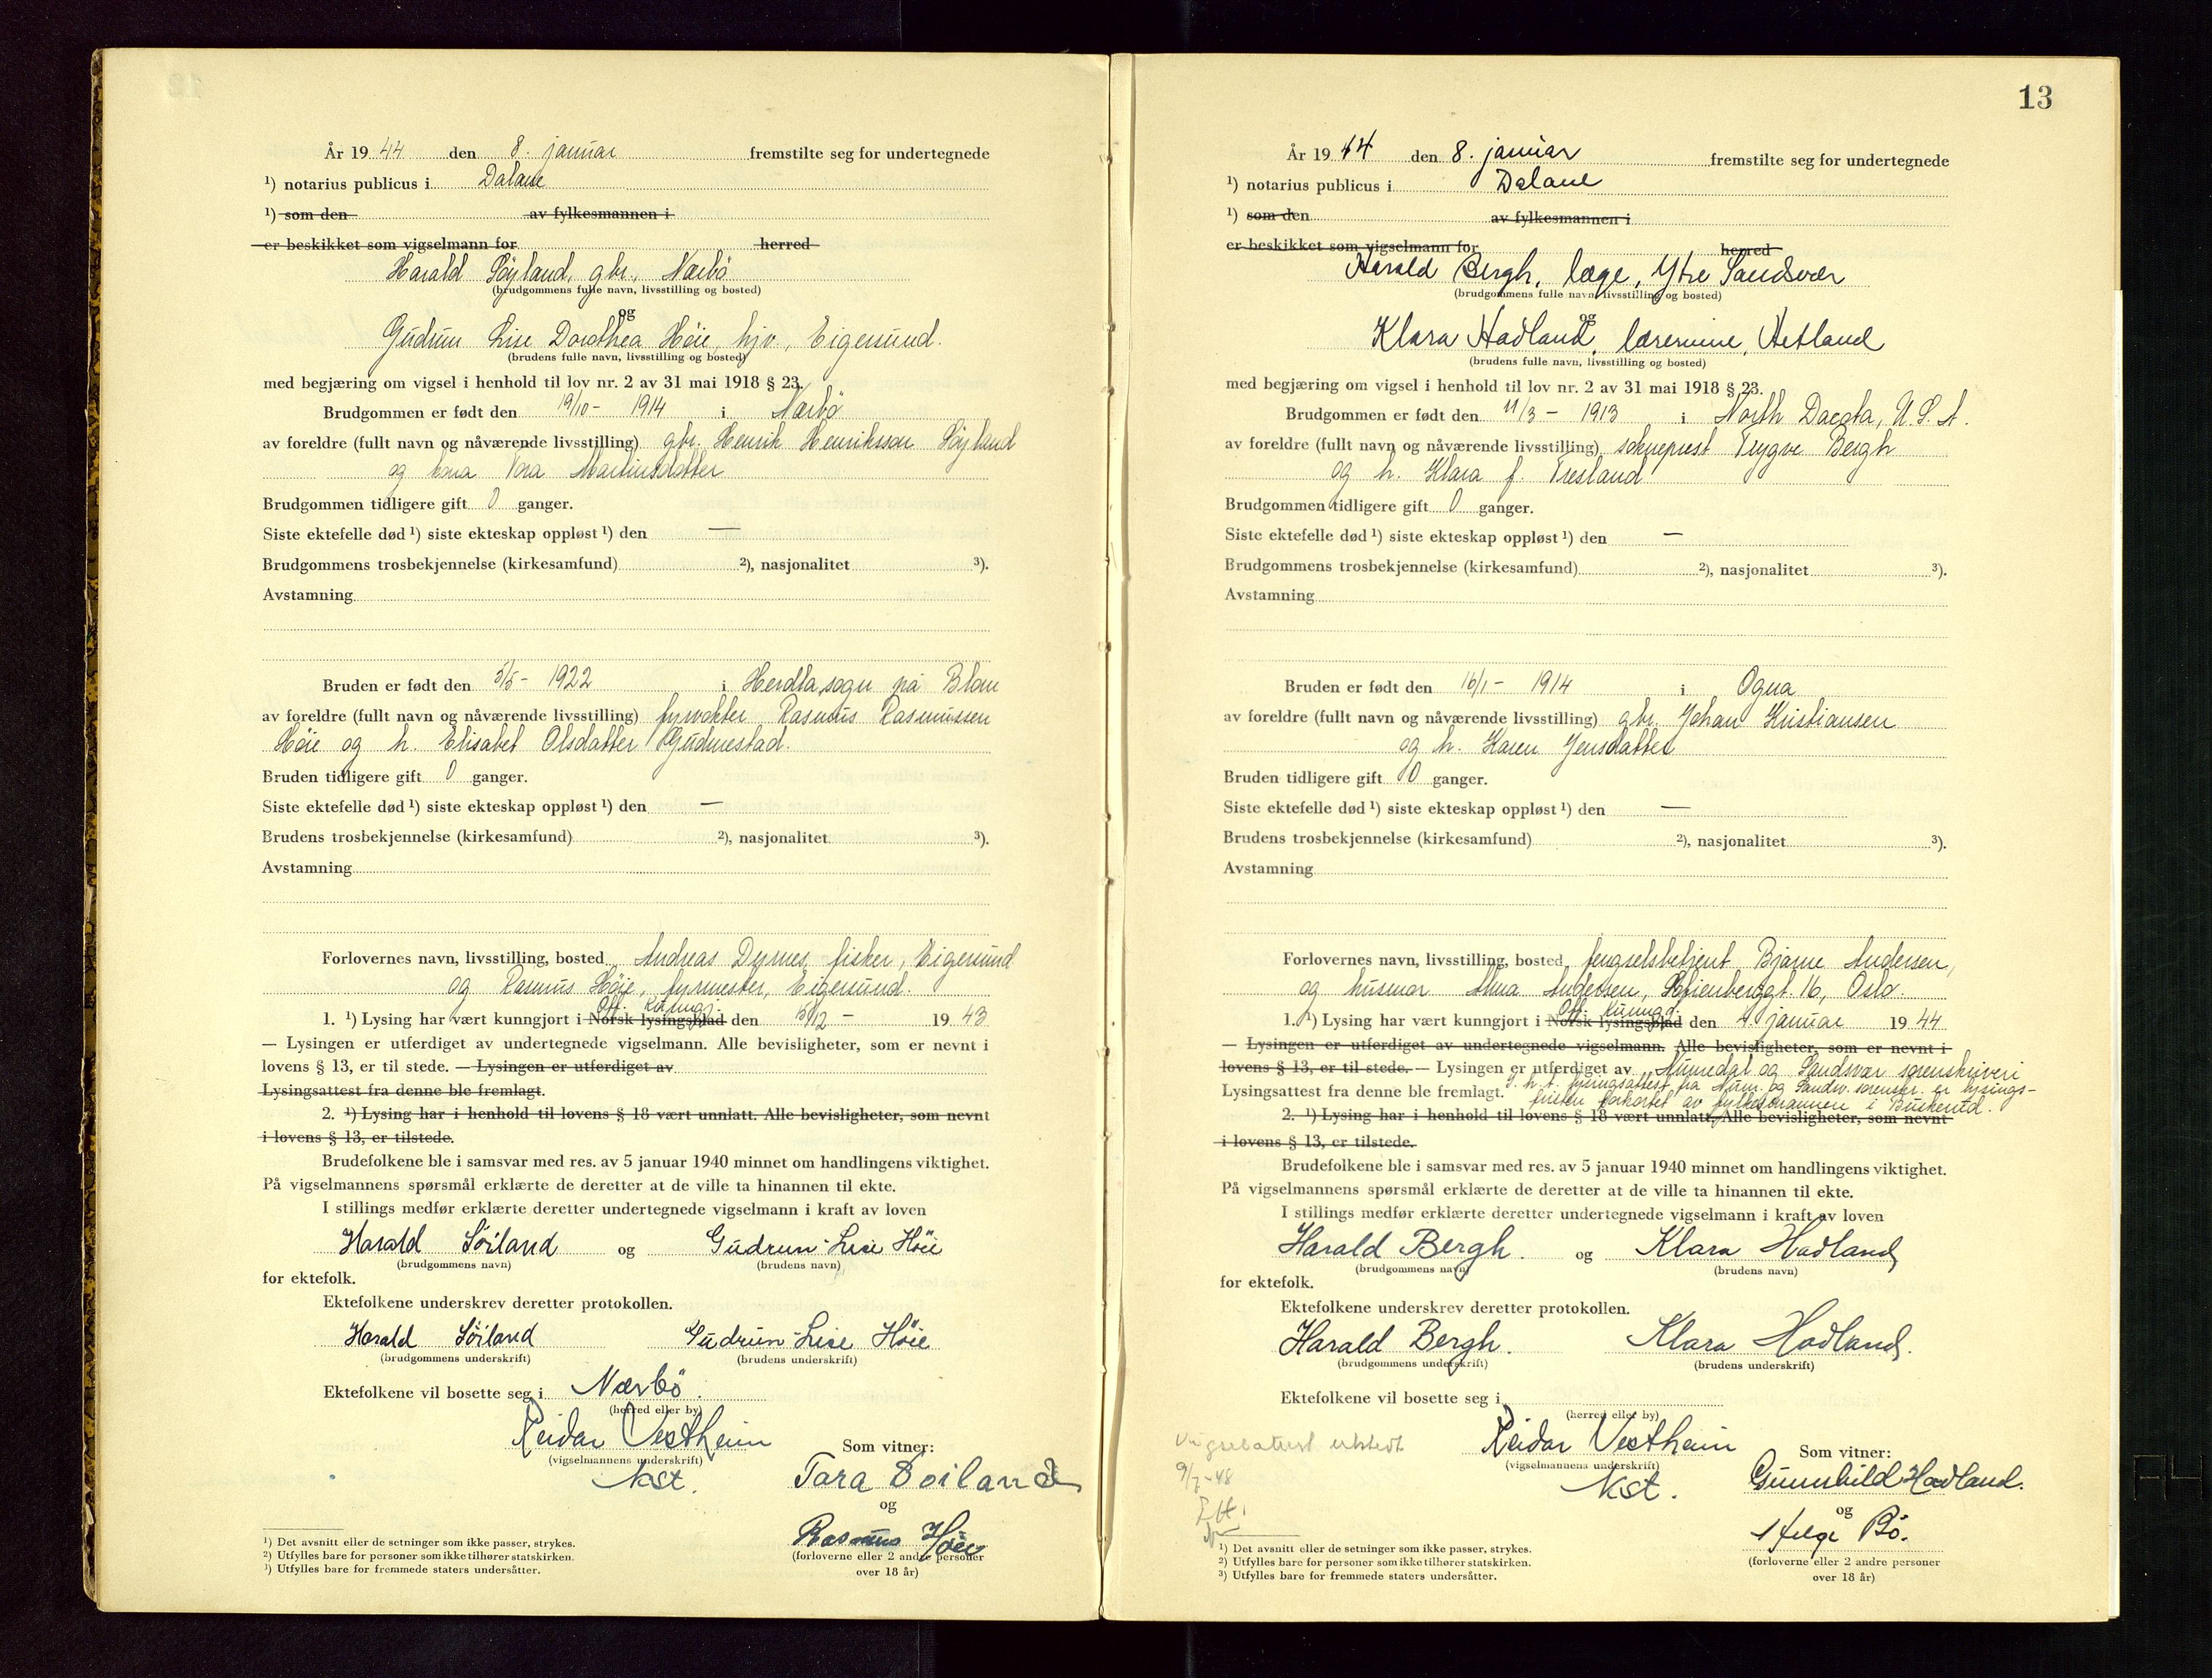 År 19 44 den 8. januar fremstilte seg for undertegnede
¹) notarius publicus i Dalane
¹) som den av fylkesmannen i
er beskikket som vigselmann for herred
Harald Söyland, gbr., Nærbö
(brudgommens fulle navn, livsstilling og bosted)
og
Gudrun Lise Dorothea Höie, hjv., Eigersund.
(brudens fulle navn, livsstilling og bosted)
med begjæring om vigsel i henhold til lov nr. 2 av 31 mai 1918 § 23.
Brudgommen er født den 19/10 - 1914 i Nærbö
av foreldre (fullt navn og nåværende livsstilling) gbr. Henrik Henriksson Söyland
og kona Tora Martinsdatter
Brudgommen tidligere gift 0 ganger.
Siste ektefelle død ¹) siste ekteskap oppløst ¹) den —
Brudgommens trosbekjennelse (kirkesamfund) ²), nasjonalitet ³).
Avstamning
Bruden er født den 5/5 - 1922 i Herdla sogn på
av foreldre (fullt navn og nåværende livsstilling) fyrvokter Rasmus Rasmussen
Höie og h. Elisabet Olsdatter Gudmestad.
Bruden tidligere gift 0 ganger.
Siste ektefelle død ¹) siste ekteskap oppløst ¹) den —
Brudens trosbekjennelse (kirkesamfund) ²), nasjonalitet ³).
Avstamning
Forlovernes navn, livsstilling, bosted Andreas fisker, Eigersund
og Rasmus Höie, fyrmester, Eigersund.
Off. kunngj.
1. ¹) Lysing har vært kunngjort i Norsk lysingsblad den /12 - 19 43
— Lysingen er utferdiget av undertegnede vigselmann. Alle bevisligheter, som er nevnt i
lovens § 13, er til stede. — Lysingen er utferdiget av
Lysingsattest fra denne ble fremlagt.
2. ¹) Lysing har i henhold til lovens § 18 vært unnlatt. Alle bevisligheter, som nevnt
i lovens § 13, er tilstede.
Brudefolkene ble i samsvar med res. av 5 januar 1940 minnet om handlingens viktighet.
På vigselmannens spørsmål erklærte de deretter at de ville ta hinannen til ekte.
I stillings medfør erklærte deretter undertegnede vigselmann i kraft av loven
Harald Söiland og Gudrun Lise Höie
(brudgommens navn) (brudens navn)
for ektefolk.
Ektefolkene underskrev deretter protokollen.
Harald Söiland Gudrun Lise Höie
(brudgommens underskrift) (brudens underskrift)
Ektefolkene vil bosette seg i Nærbö.
(herred eller by)
Reidar Vestheim Som vitner:
(vigselmannens underskrift)
kst. Tora Soiland
og
Rasmus Höie
(forloverne eller 2 andre personer
over 18 år)
¹) Det avsnitt eller de setninger som ikke passer, strykes.
²) Utfylles bare for personer som ikke tilhører statskirken.
³) Utfylles bare for fremmede staters undersåtter.
13
År 19 44 den 8. januar fremstilte seg for undertegnede
¹) notarius publicus i Dalane
¹) som den av fylkesmannen i
er beskikket som vigselmann for herred
Harald Bergh, læge, Ytre Sandsvær
(brudgommens fulle navn, livsstilling og bosted)
og
Klara Hadland, lærerinne, Hetland
(brudens fulle navn, livsstilling og bosted)
med begjæring om vigsel i henhold til lov nr. 2 av 31 mai 1918 § 23.
Brudgommen er født den 11/3 - 1913 i North Dacota, U.S.A.
av foreldre (fullt navn og nåværende livsstilling) sokneprest Trygve Bergh
og h. Klara f. Tresland
Brudgommen tidligere gift 0 ganger.
Siste ektefelle død ¹) siste ekteskap oppløst ¹) den —
Brudgommens trosbekjennelse (kirkesamfund) ²), nasjonalitet ³).
Avstamning
Bruden er født den 16/1 - 1914 i Ogna
av foreldre (fullt navn og nåværende livsstilling) gbr. Johan Kristiansen
og h. Karen Jensdatter
Bruden tidligere gift 0 ganger.
Siste ektefelle død ¹) siste ekteskap oppløst ¹) den —
Brudens trosbekjennelse (kirkesamfund) ²), nasjonalitet ³).
Avstamning
Forlovernes navn, livsstilling, bosted fengselsbetjent Bjarne Andersen,
og husmor Anna Andersen, Sofienberggt. 16, Oslo.
Off. kunngj.
1. ¹) Lysing har vært kunngjort i Norsk lysingsblad den 4. januar 19 44
— Lysingen er utferdiget av undertegnede vigselmann. Alle bevisligheter, som er nevnt i
lovens § 13, er til stede. — Lysingen er utferdiget av Numedal og Sandsvær sorenskriveri
Lysingsattest fra denne ble fremlagt. I.h.t. lysingsattest fra Num. og Sandsv. sorenskr. er lysings-
fristen forkortet av fylkesmannen i Buskerud.
2. ¹) Lysing har i henhold til lovens § 18 vært unnlatt. Alle bevisligheter, som nevnt
i lovens § 13, er tilstede.
Brudefolkene ble i samsvar med res. av 5 januar 1940 minnet om handlingens viktighet.
På vigselmannens spørsmål erklærte de deretter at de ville ta hinannen til ekte.
I stillings medfør erklærte deretter undertegnede vigselmann i kraft av loven
Harald Bergh. og Klara Hadland
(brudgommens navn) (brudens navn)
for ektefolk.
Ektefolkene underskrev deretter protokollen.
Harald Bergh. Klara Hadland.
(brudgommens underskrift) (brudens underskrift)
Ektefolkene vil bosette seg i
(herred eller by)
Vigselattest utstedt
9/7-48
Reidar Vestheim Som vitner:
(vigselmannens underskrift)
kst. Gunnhild Hadland.
og
Helge Bö.
(forloverne eller 2 andre personer
over 18 år)
¹) Det avsnitt eller de setninger som ikke passer, strykes.
²) Utfylles bare for personer som ikke tilhører statskirken.
³) Utfylles bare for fremmede staters undersåtter.